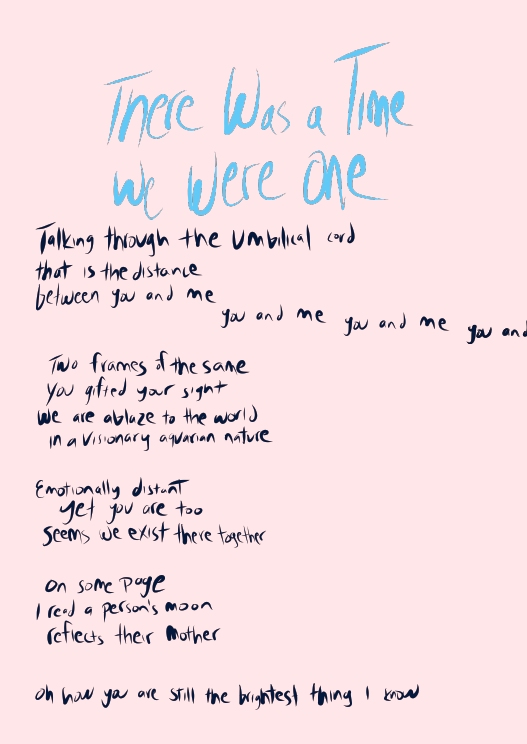 There Was a Time
We Were One
Talking through the umbilical cord
that is the distance
between you and me
you and me you and me you and
Two frames of the same
You gifted your sight
we are ablaze to the world
in a visionary aquarian nature
Emotionally distant
yet you are too
seems we exist there together
on some page
I read a person's moon
reflects their mother
oh how you are still the brightest thing I know